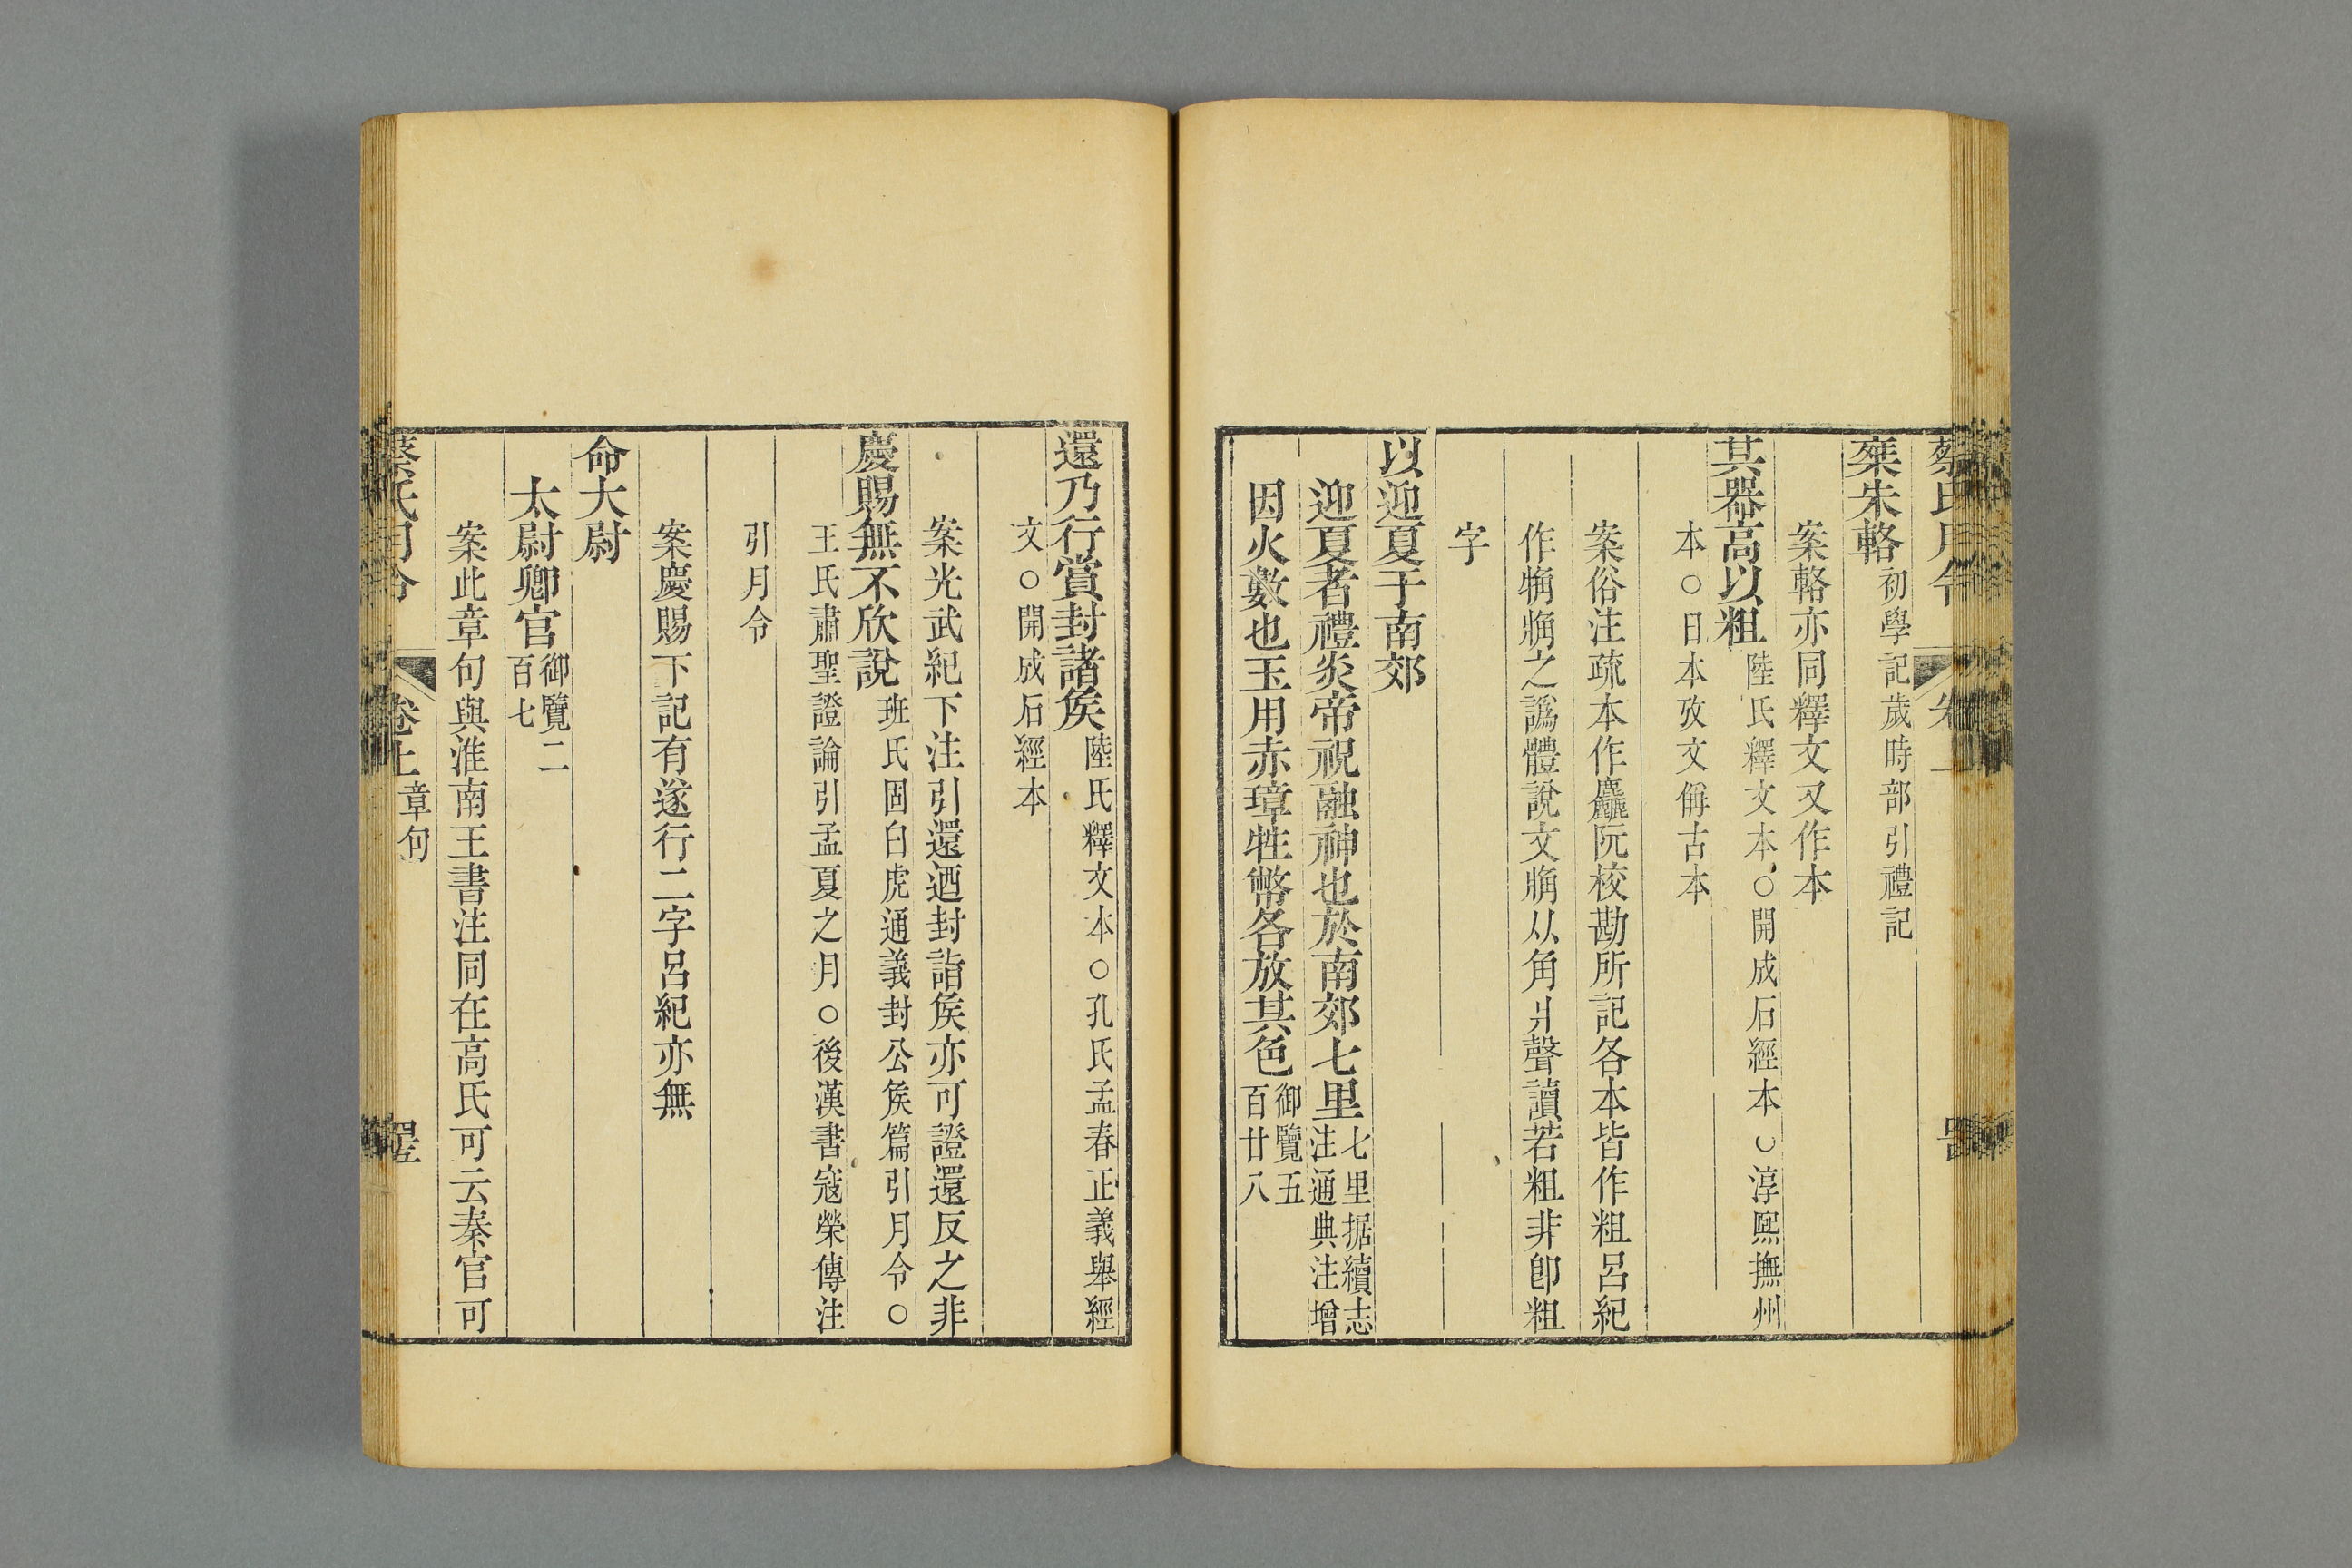 蔡氏月令
椉朱輅初學記歲時部引禮記
案輅亦同釋文又作本
其器高以粗陸氏釋文本○開成石經本○淳熙撫州
本○日本攷文偁古本
案俗注疏本作麤阮校勘所記各本皆作粗呂紀
作觕之譌體說文从角爿聲讀若粗非卽粗
字
以迎夏于南郊
迎夏者禮炎帝祝融神也於南郊七里七里据續志
注通典注增
因火數也玉用赤璋牲幣各放其色御覽五
百廿八
還乃行賞封諸矦陸氏釋文本○孔氏孟春正義舉經
文○開成石經本
案光武紀下注引還迺封諸矦亦可證還反之非
慶賜無不欣說班氏固白虎通義封公矦篇引月令○
王氏肅聖證論引孟夏之月○後漢書寇榮傳注
引月令
案慶賜下記有遂行二字呂紀亦無
命大尉
太尉卿官御覽二
百七
案此章句與淮南王書注同在高氏可云秦官可
蔡氏月令 卷上 章句